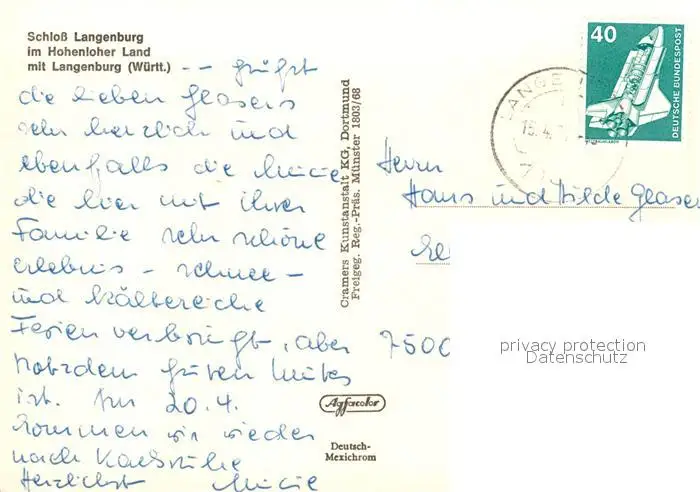 Schloß Langenburg
im Hohenloher Land
mit Langenburg (Württ.)
-- grüßt
die lieben Glasers
sehr herzlich und
ebenfalls die
die hier mit ihrer
Familie sehr schöne
erlebnis - schnee -
und kältereiche
Ferien verbringt, aber
trotzdem guten Mutes
ist. Am 20.4.
kommen wir wieder
nach Karlsruhe
Herzlichst
Cramers Kunstanstalt KG, Dortmund
Freigeg. Reg.-Präs. Münster 1803/68
Agfacolor
Deutsch-
Mexichrom
40
DEUTSCHE BUNDESPOST
LANGE
15.4.
Herrn
Hans und Hilde Glaser
7500
privacy protection
Datenschutz